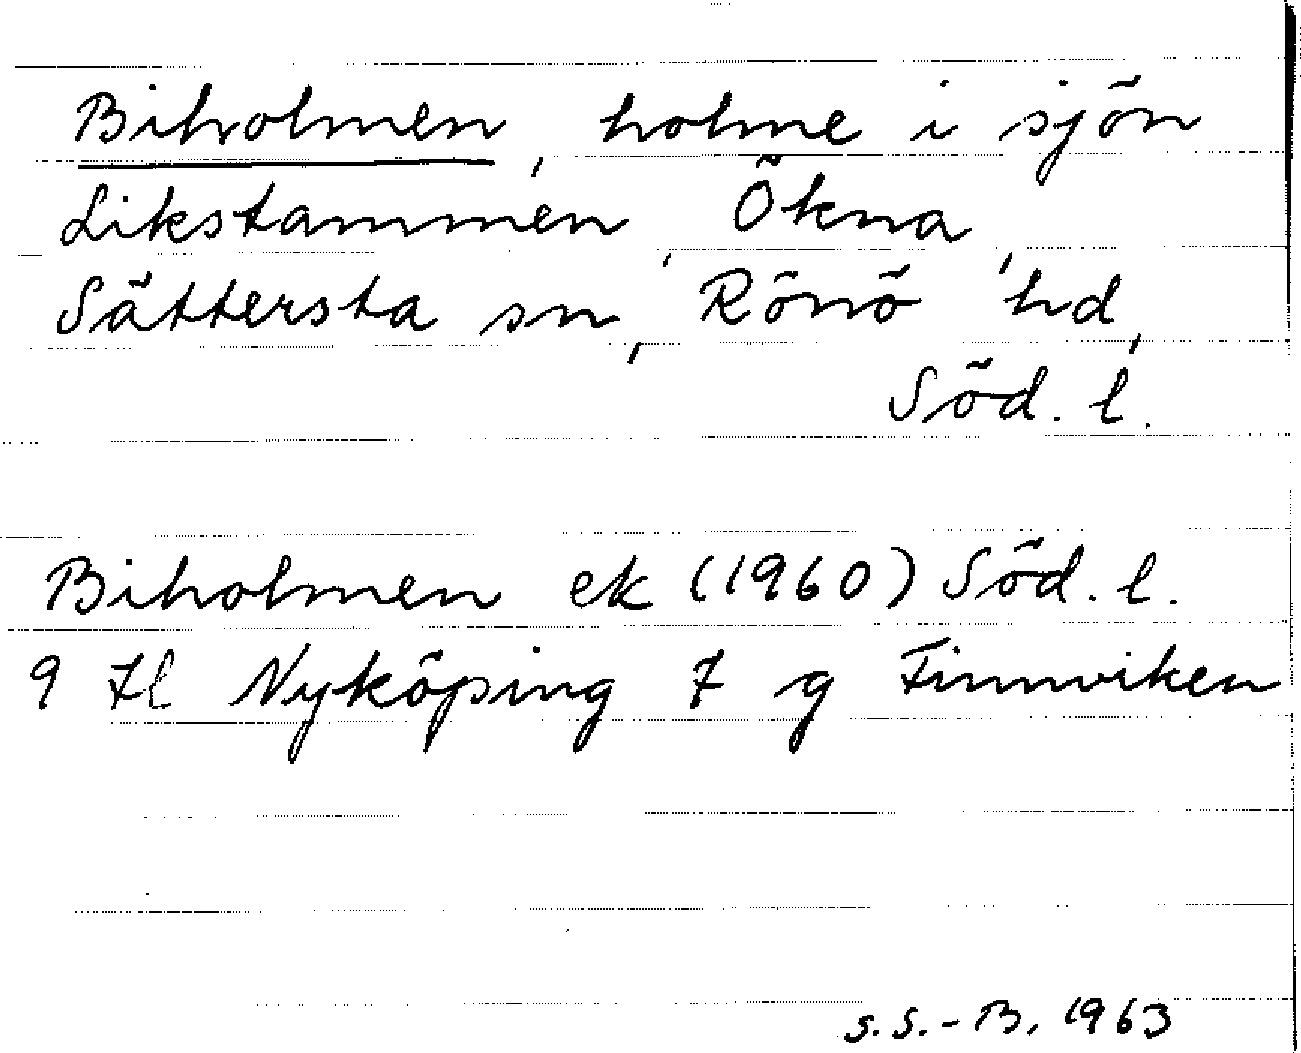 Biholmen, holme i sjön
Likstammen, Ökna,
Sättersta sn, Rönö hd,
Söd. l.
Biholmen ek (1960) Söd. l.
9 H Nyköping 7 g Finnviken
S.S.-B. 1963